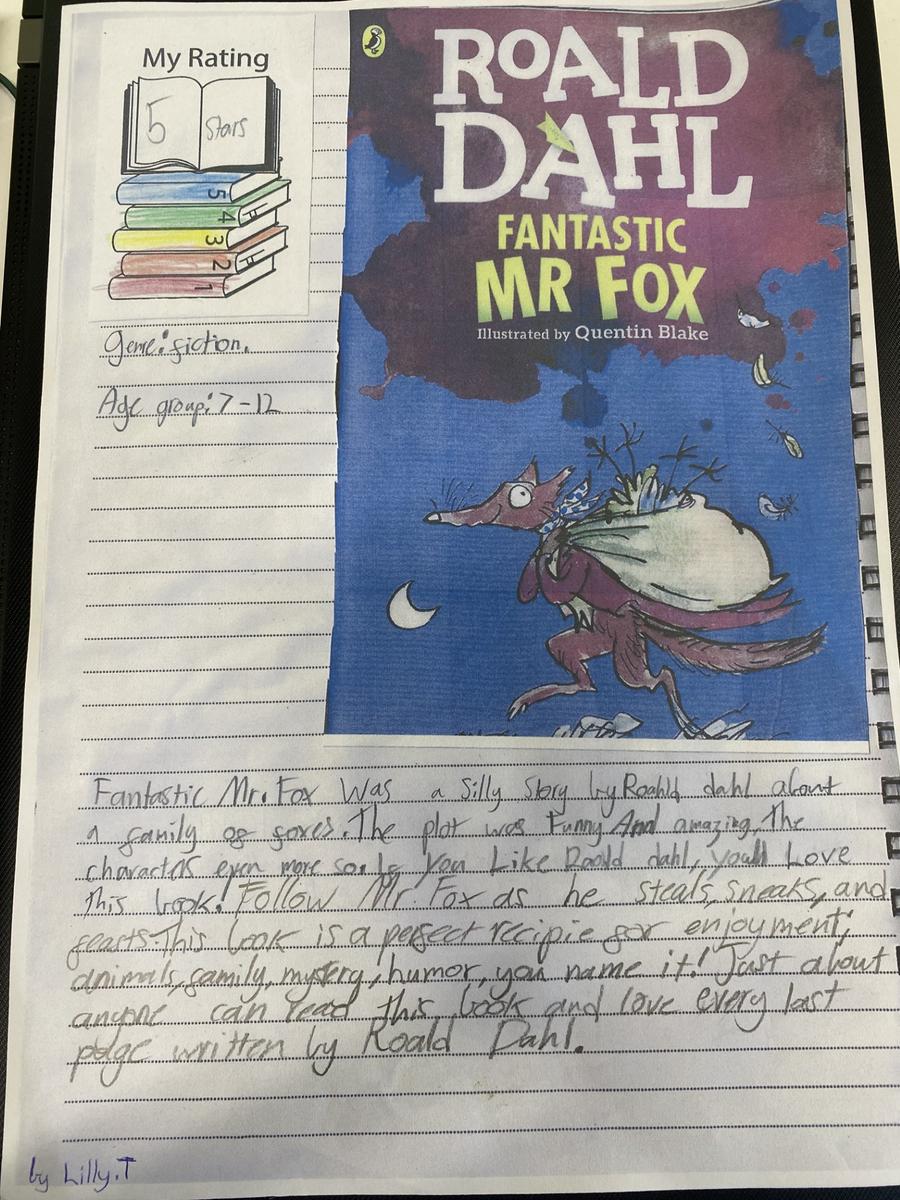 My Rating
5 Stars
5
4
3
2
1
ROALD
DAHL
FANTASTIC
MR FOX
Illustrated by Quentin Blake
Genre: fiction.
Age group: 7-12
Fantastic Mr. Fox Was a Silly Story by Roahld dahl about
a family of foxes. The plot was Funny And amazing, the
characters even more so. If you Like Roald dahl, youll Love
this book! Follow Mr. Fox as he steals, sneaks, and
feasts. This book is a perfect recipie for enjoyment;
animals, family, mystery, humor, you name it! Just about
anyone can read this book and love every last
page written by Roald Dahl.
by Lilly.T